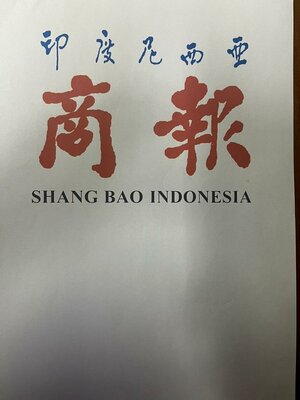 印度尼西亚
商報
SHANG BAO INDONESIA